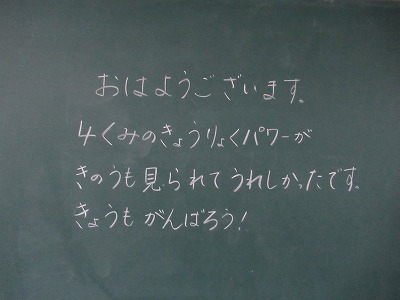 おはようございます。
4くみのきょうりょくパワーが
きのうも見られてうれしかったです。
きょうもがんばろう!